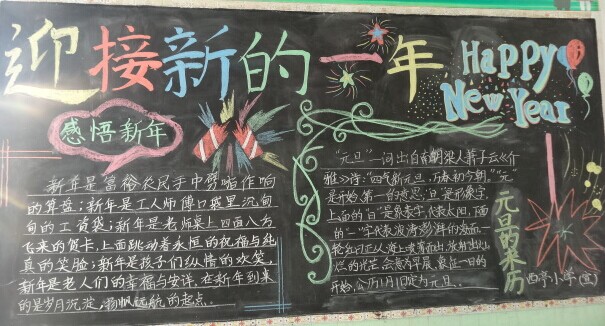 迎接新的一年
Happy
New Year
感悟新年
新年是富裕农民手中劈啪作响
的算盘；新年是工人师傅口袋里沉甸
甸的工资袋；新年是老师桌上四面八方
飞来的贺卡，上面跳动着永恒的祝福与纯
真的笑脸；新年是孩子们纵情的欢笑，
新年是老人们的幸福与安详。在新年到来
的是岁月沉淀，扬帆远航的起点。
"元旦"一词出自南朝梁人萧子云《介
雅》诗："四气新元旦，万寿初今朝。""元"
是开始，第一的意思，"旦"是形象字，
上面的"日"是象表字，代表太阳，下面
的"一"字代表波涛澎湃的海面一
轮红日正从海上披着而出，放射出灿
烂的光芒，象征一日的
开始，公历1月1日定为元旦。
元旦的来历
西亭小学(宣)